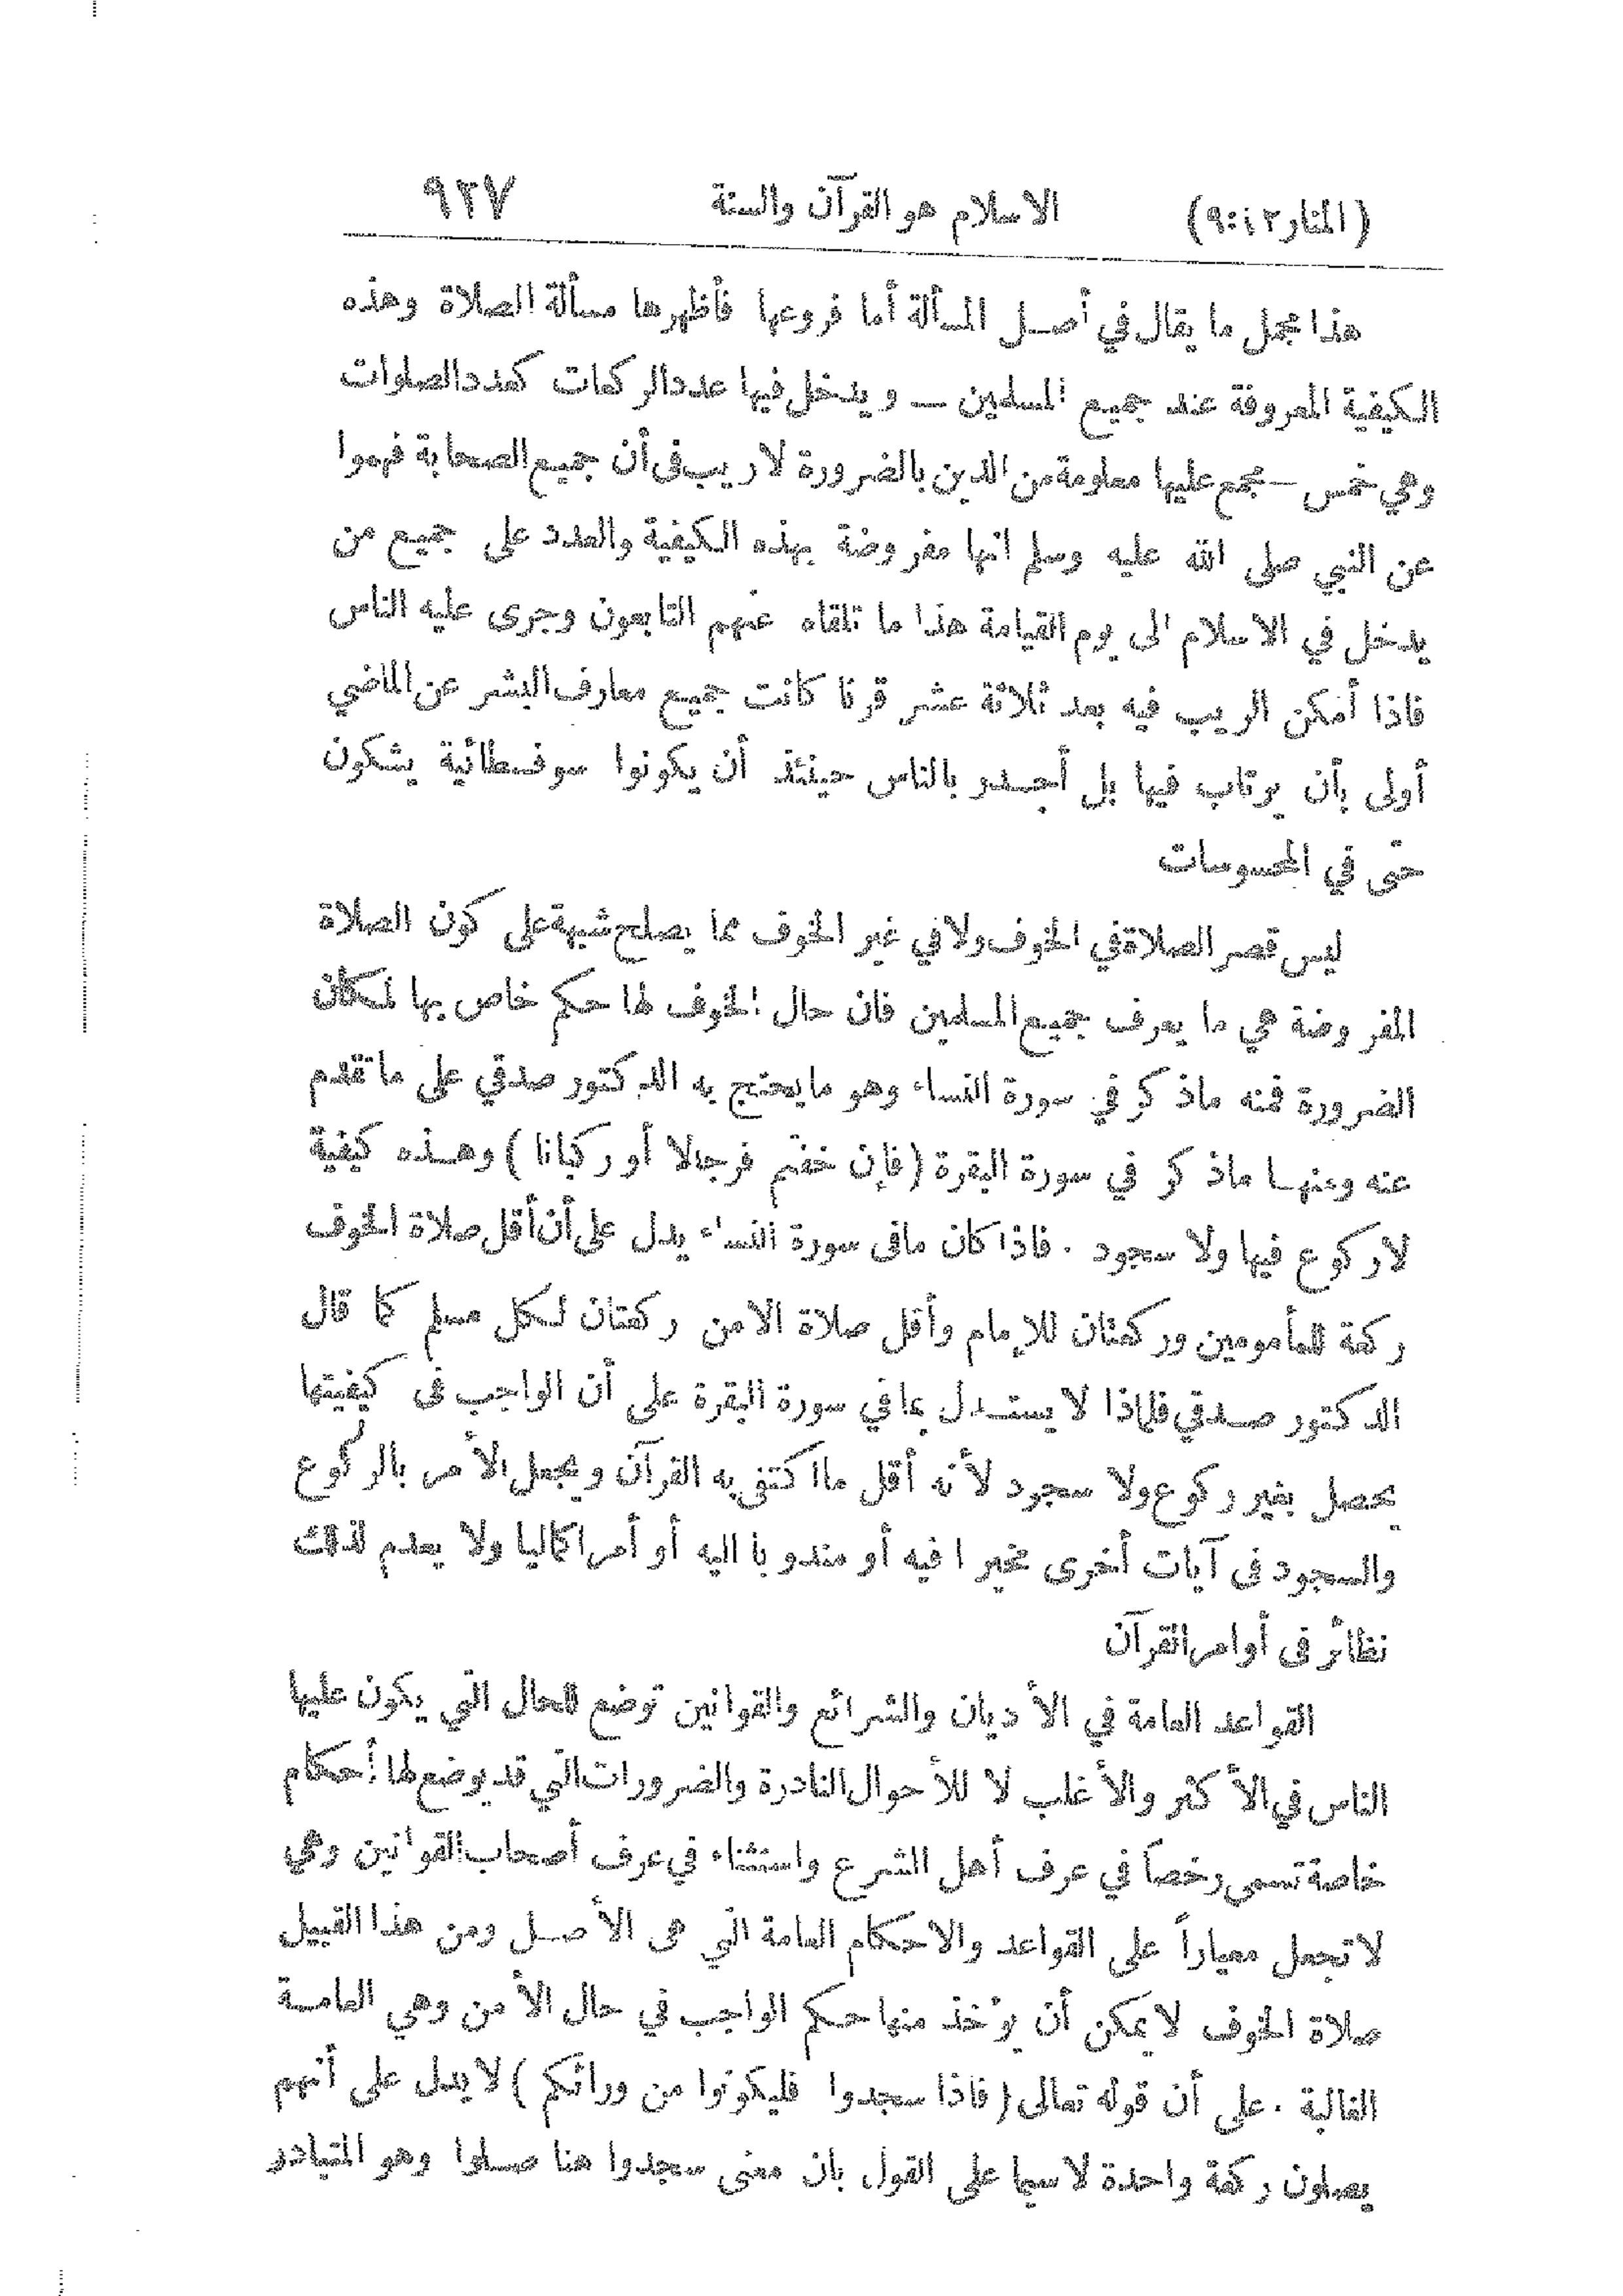 (المنار ١٢:٩) الاسلام هو القرآن والسنة ٩٢٧
هذا مجمل ما يقال في أصل المسألة أما فروعها فأظهرها مسألة الصلاة وهذه
الكيفية المعروفة عند جميع المسلمين – ويدخل فيها عدد الركعات كعدد الصلوات
وهي خمس – مجمع عليها معلومة من الدين بالضرورة لا ريب فى أن جميع الصحابة فهموا
عن النبي صلى الله عليه وسلم انها مفروضة بهذه الكيفية والعدد على جميع من
يدخل في الاسلام الى يوم القيامة هذا ما تلقاه عنهم التابعون وجرى عليه الناس
فاذا أمكن الريب فيه بعد ثلاثة عشر قرنا كانت جميع معارف البشر عن الماضي
أولى بأن يرتاب فيها بل أجدر بالناس حينئذ أن يكونوا سوفسطائية يشكون
حتى في المحسوسات
ليس قصر الصلاة في الخوف ولا في غير الخوف مما يصلح شبهة على كون الصلاة
المفروضة هي ما يعرف جميع المسلمين فان حال الخوف لها حكم خاص بها لمكان
الضرورة فمنه ماذكر في سورة النساء وهو ما يحتج به الدكتور صدقي على ما تقدم
عنه ومنها ماذكر في سورة البقرة (فإن خفتم فرجالا أو ركبانا) وهذه كيفية
لا ركوع فيها ولا سجود . فاذا كان مافى سورة النساء يدل على أن أقل صلاة الخوف
ركعة للمأمومين وركعتان للإمام وأقل صلاة الامن ركعتان لكل مسلم كما قال
الدكتور صدقي فلماذا لا يستدل بما في سورة البقرة على أن الواجب فى كيفيتها
يحصل بغير ركوع ولا سجود لأنه أقل ما اكتفى به القرآن ويجعل الأمر بالركوع
والسجود فى آيات أخرى مخيرا فيه أو مندوبا اليه أو أمرا كماليا ولا يعدم لذلك
نظائر فى أوامر القرآن
القواعد العامة في الأديان والشرائع والقوانين توضع للحال التي يكون عليها
الناس في الأكثر والأغلب لا للأحوال النادرة والضرورات التي قد يوضع لها أحكام
خاصة تسمى رخصاً في عرف أهل الشرع واستثناء في عرف أصحاب القوانين وهي
لا تجعل معياراً على القواعد والاحكام العامة التي هى الأصل ومن هذا القبيل
صلاة الخوف لا يمكن أن يؤخذ منها حكم الواجب في حال الأمن وهي العامة
الغالبة . على أن قوله تعالى (فاذا سجدوا فليكونوا من ورائكم) لا يدل على أنهم
يصلون ركعة واحدة لا سيما على القول بان معنى سجدوا هنا صلوا وهو المتبادر